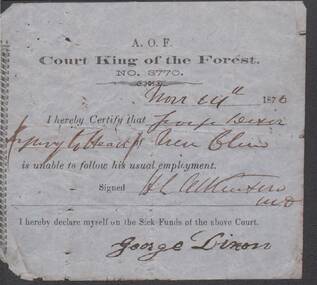 A. O. F.
Court King of the Forest.
NO. 3770.
Nov 1876
I hereby Certify that George Dixon
is unable to follow his usual employment.
Signed H L Atkinson
MD
I hereby declare myself on the Sick Funds of the above Court.
George Dixon